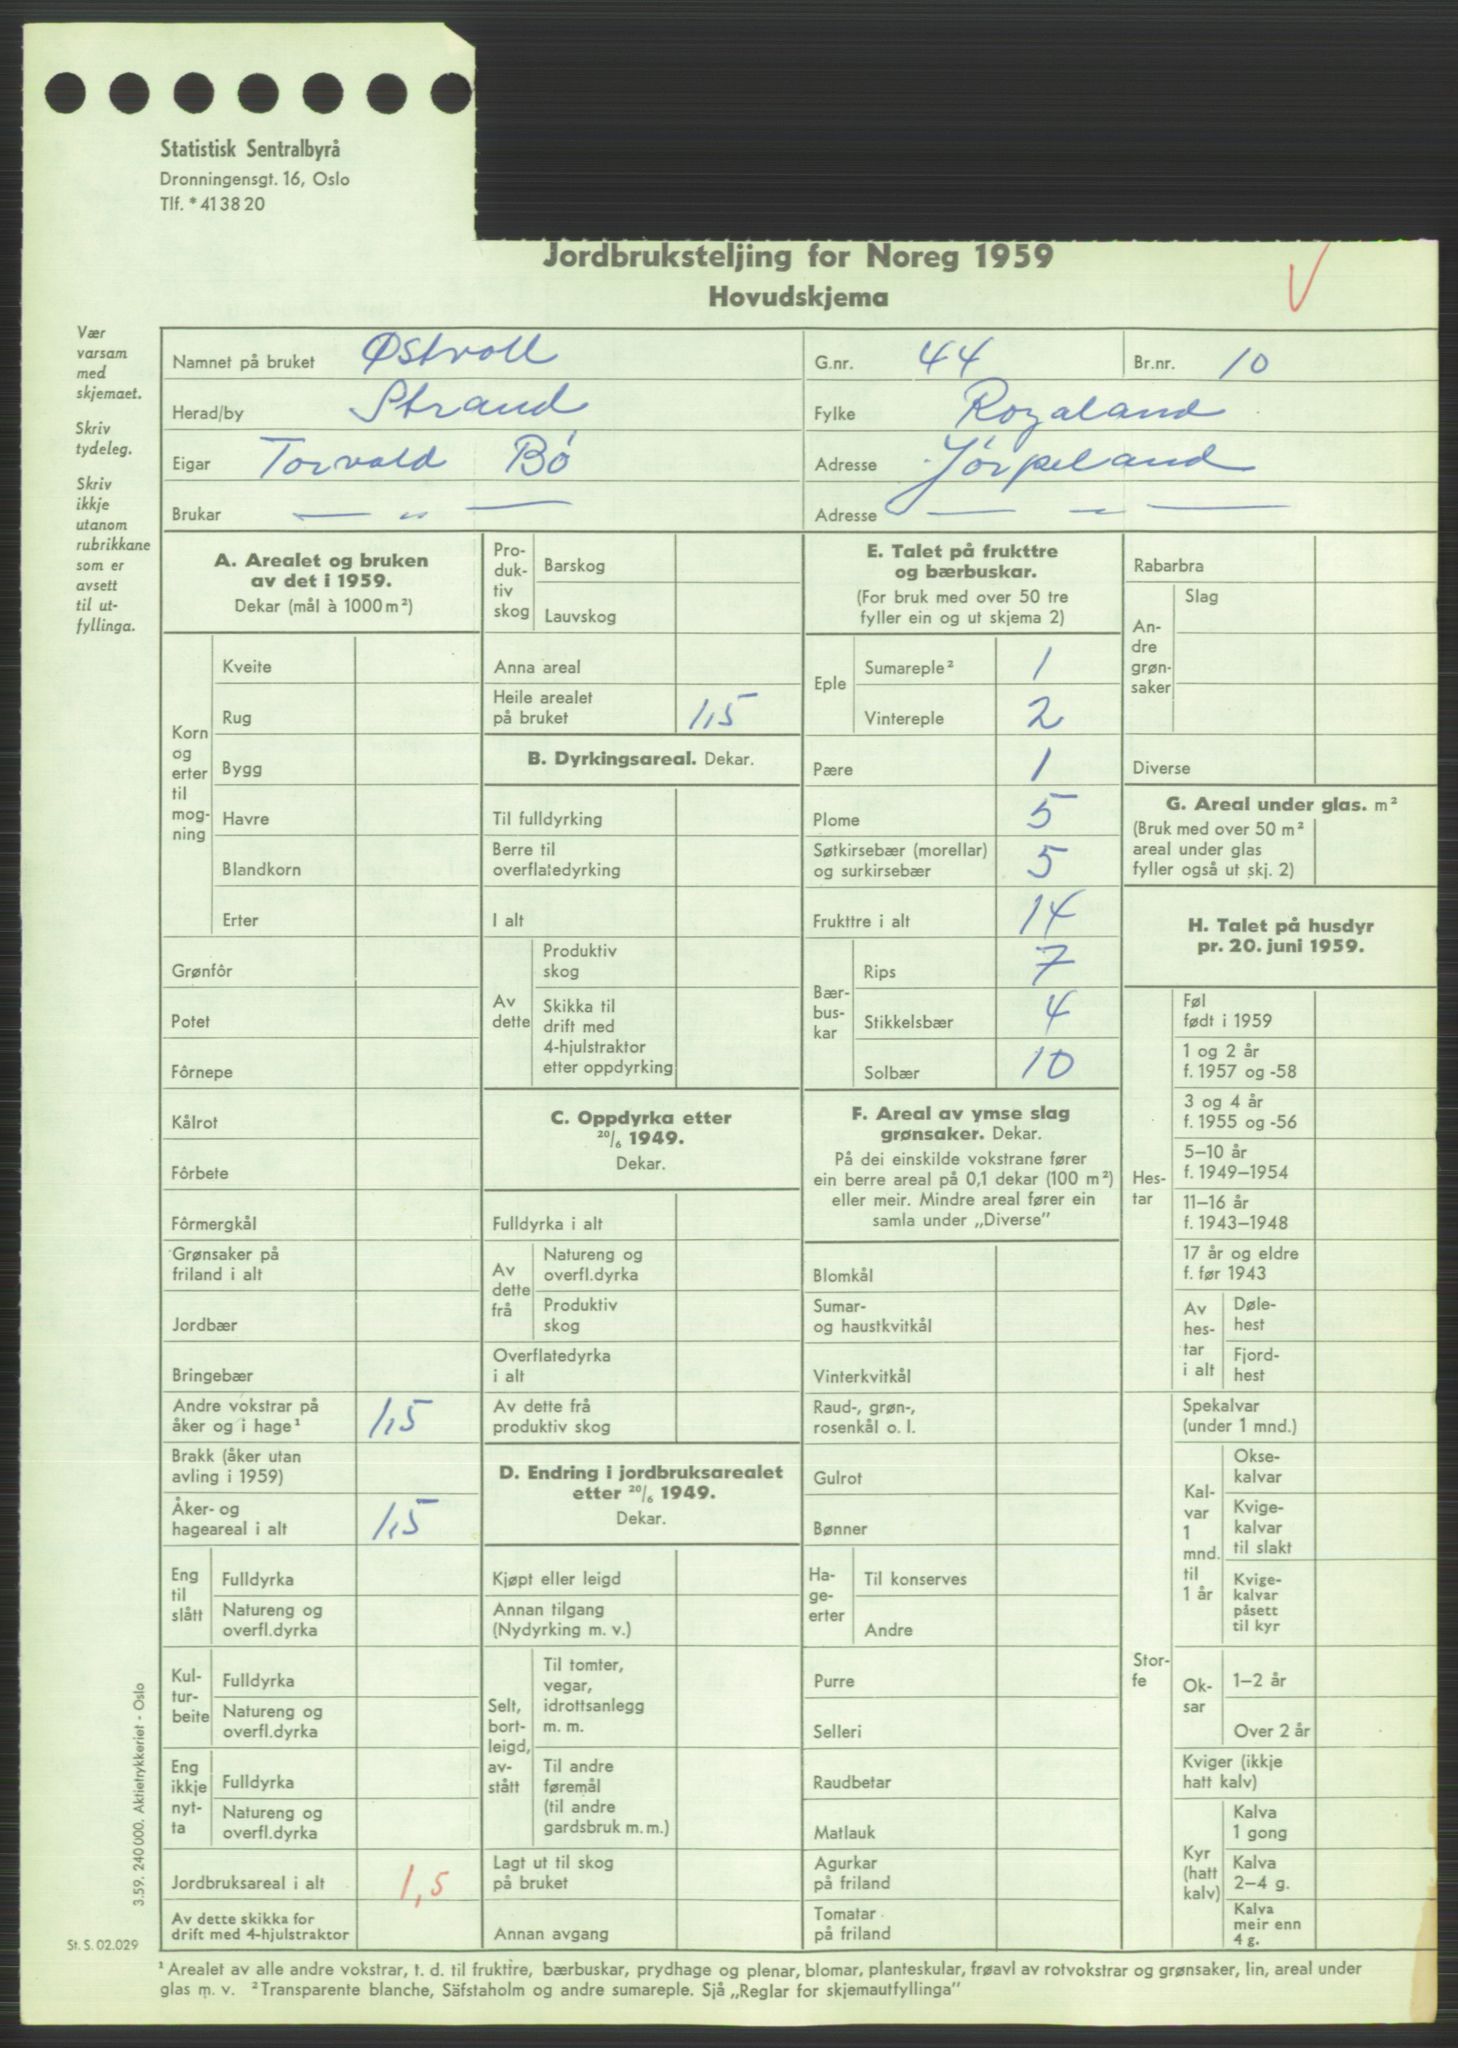 Statistisk Sentralbyrå
Dronningensgt. 16, Oslo
Tlf. *41 38 20
Jordbruksteljing for Noreg 1959
Hovudskjema
Vær
varsam
med
skjemaet.
Skriv
tydeleg.
Skriv
ikkje
utanom
rubrikkane
som er
avsett
til ut-
fyllinga.
Namnet på bruket Østvoll G.nr. 44 Br.nr. 10
Herad/by Strand Fylke Rogaland
Eigar Torvald Bö Adresse Jörpeland
Brukar — „ — Adresse — „ —
A. Arealet og bruken
av det i 1959.
Dekar (mål à 1000 m²)
Korn
og
erter
til
mog-
ning
Kveite
Rug
Bygg
Havre
Blandkorn
Erter
Grønfôr
Potet
Fôrnepe
Kålrot
Fôrbete
Fôrmergkål
Grønsaker på
friland i alt
Jordbær
Bringebær
Andre vokstrar på
åker og i hage¹ 1,5
Brakk (åker utan
avling i 1959)
Åker- og
hageareal i alt 1,5
Eng
til
slått
Fulldyrka
Natureng og
overfl.dyrka
Kul-
tur-
beite
Fulldyrka
Natureng og
overfl.dyrka
Eng
ikkje
nyt-
ta
Fulldyrka
Natureng og
overfl.dyrka
Jordbruksareal i alt 1,5
Av dette skikka for
drift med 4-hjulstraktor
Pro-
duk-
tiv
skog
Barskog
Lauvskog
Anna areal
Heile arealet
på bruket 1,5
B. Dyrkingsareal. Dekar.
Til fulldyrking
Berre til
overflatedyrking
I alt
Av
dette
Produktiv
skog
Skikka til
drift med
4-hjulstraktor
etter oppdyrking
C. Oppdyrka etter
20/6 1949.
Dekar.
Fulldyrka i alt
Av
dette
frå
Natureng og
overfl.dyrka
Produktiv
skog
Overflatedyrka
i alt
Av dette frå
produktiv skog
D. Endring i jordbruksarealet
etter 20/6 1949.
Dekar.
Kjøpt eller leigd
Annan tilgang
(Nydyrking m. v.)
Selt,
bort-
leigd,
av-
stått
Til tomter,
vegar,
idrottsanlegg
m. m.
Til andre
føremål
(til andre
gardsbruk m. m.)
Lagt ut til skog
på bruket
Annan avgang
E. Talet på frukttre
og bærbuskar.
(For bruk med over 50 tre
fyller ein og ut skjema 2)
Eple
Sumareple² 1
Vintereple 2
Pære 1
Plome 5
Søtkirsebær (morellar)
og surkirsebær 5
Frukttre i alt 14
Bær-
bus-
kar
Rips 7
Stikkelsbær 4
Solbær 10
F. Areal av ymse slag
grønsaker. Dekar.
På dei einskilde vokstrane fører
ein berre areal på 0,1 dekar (100 m²)
eller meir. Mindre areal fører ein
samla under „Diverse”
Blomkål
Sumar-
og haustkvitkål
Vinterkvitkål
Raud-, grøn-,
rosenkål o. l.
Gulrot
Bønner
Ha-
ge-
erter
Til konserves
Andre
Purre
Selleri
Raudbetar
Matlauk
Agurkar
på friland
Tomatar
på friland
Rabarbra
An-
dre
grøn-
saker
Slag
Diverse
G. Areal under glas. m²
(Bruk med over 50 m²
areal under glas
fyller også ut skj. 2)
H. Talet på husdyr
pr. 20. juni 1959.
Hes-
tar
Føl
født i 1959
1 og 2 år
f. 1957 og -58
3 og 4 år
f. 1955 og -56
5–10 år
f. 1949–1954
11–16 år
f. 1943–1948
17 år og eldre
f. før 1943
Av
hes-
tar
i alt
Døle-
hest
Fjord-
hest
Stor-
fe
Spekalvar
(under 1 mnd.)
Kal-
var
1
mnd.
til
1 år
Okse-
kalvar
Kvige-
kalvar
til slakt
Kvige-
kalvar
påsett
til kyr
Ok-
sar
1–2 år
Over 2 år
Kviger (ikkje
hatt kalv)
Kyr
(hatt
kalv)
Kalva
1 gong
Kalva
2–4 g.
Kalva
meir enn
4 g.
3.59. 240 000. Aktietrykkeriet - Oslo
St. S. 02.029
¹ Arealet av alle andre vokstrar, t. d. til frukttre, bærbuskar, prydhage og plenar, blomar, planteskular, frøavl av rotvokstrar og grønsaker, lin, areal under
glas m. v. ² Transparente blanche, Säfstaholm og andre sumareple. Sjå „Reglar for skjemautfyllinga”